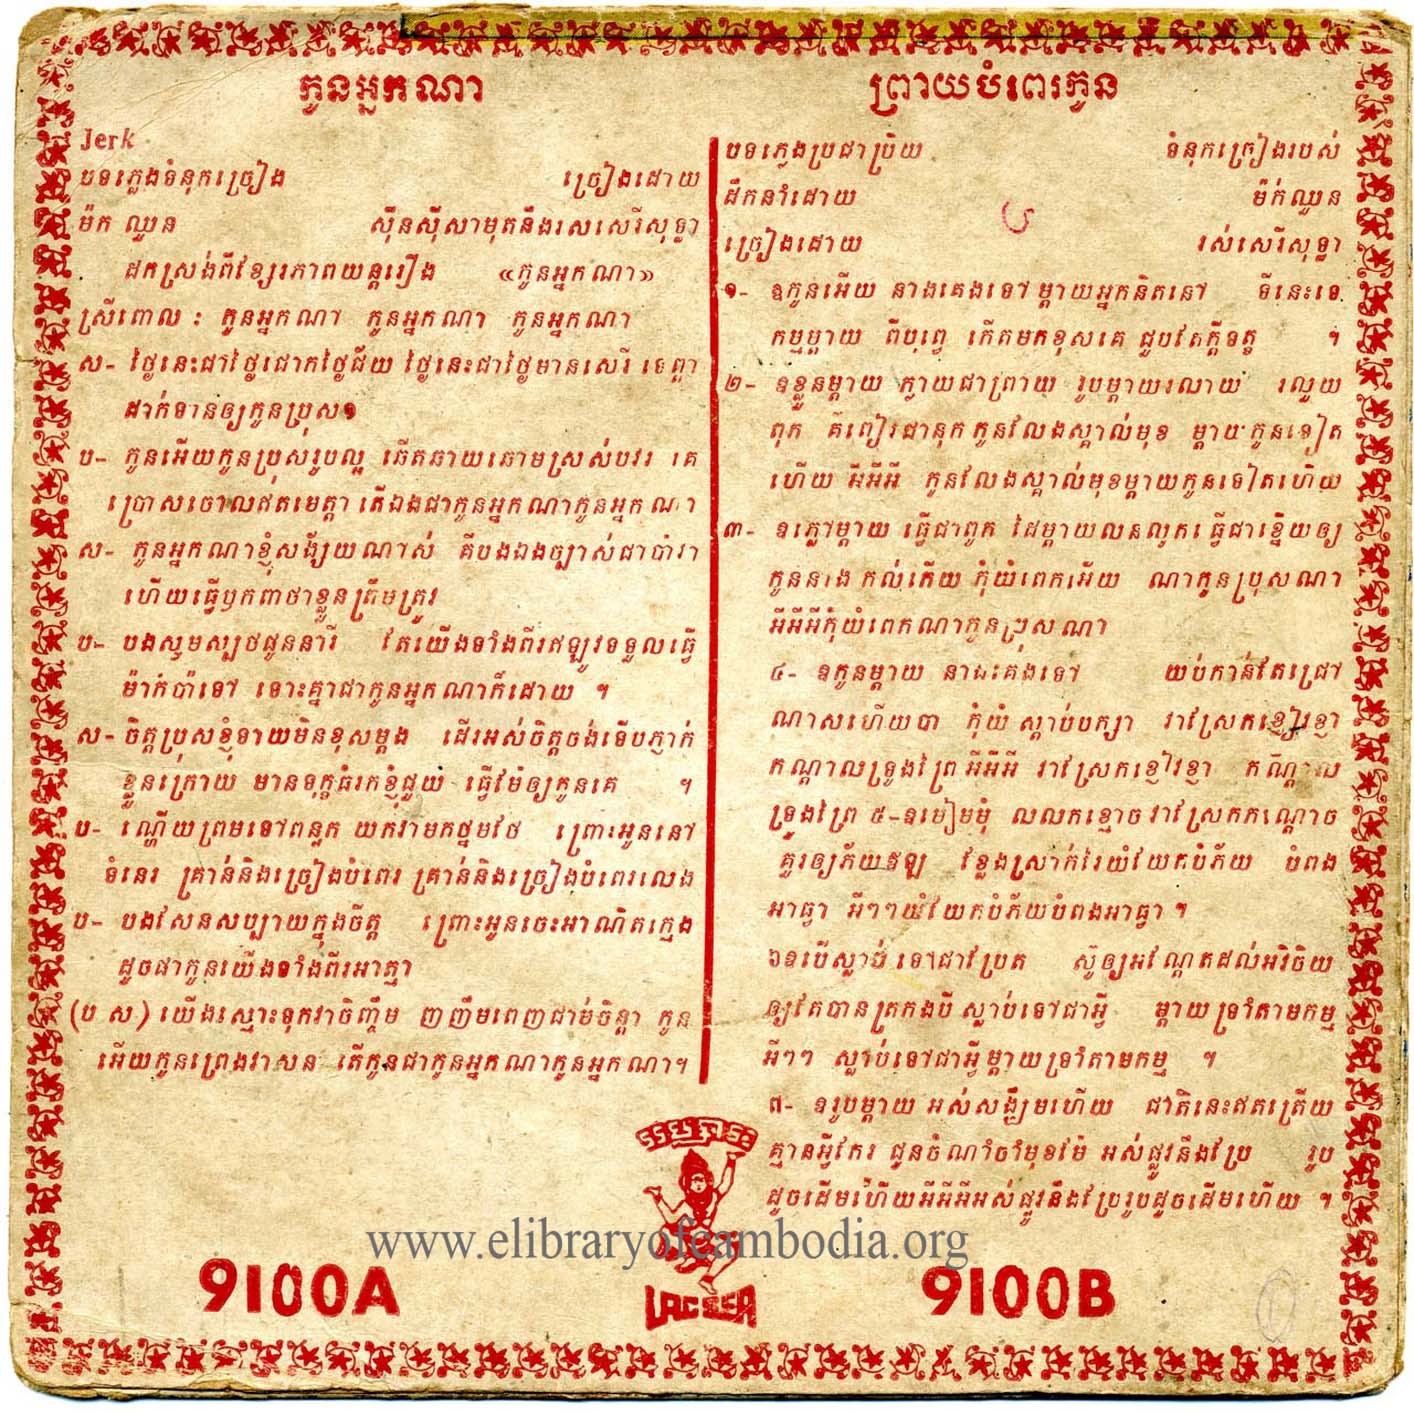 កូនអ្នកណា
Jerk
បទភ្លេងទំនុកច្រៀង ច្រៀងដោយ
ម៉ក ឈួន ស៊ីនស៊ីសាមុតនឹងរសសេរីសុទ្ធា
ដកស្រង់ពីខ្សែរភាពយន្តរឿង «កូនអ្នកណា»
ស្រីពោល : កូនអ្នកណា កូនអ្នកណា កូនអ្នកណា
ស- ថ្ងៃនេះជាថ្ងៃជោកថ្ងៃជ័យ ថ្ងៃនេះជាថ្ងៃមានសេរី ទេព្តា
ដាក់ទានឲ្យកូនប្រុស១
ប- កូនអើយកូនប្រុសរូបល្អ ឆើតឆាយឆោមស្រស់បវរ គេ
ប្រោសចោលឥតមេត្តា តើឯងជាកូនអ្នកណាកូនអ្នកណា
ស- កូនអ្នកណាខ្ញុំសង្ស័យណាស់ គឺបងឯងច្បាស់ជាប៉ារ៉ា
ហើយធ្វើឫកពាថាខ្លួនត្រឹមត្រូវ
ប- បងសូមស្បថជូននារី តែយើងទាំងពីរឥឡូវទទួលធ្វើ
ម៉ាក់ប៉ាទៅ ទោះគ្នាជាកូនអ្នកណាក៏ដោយ ។
ស- ចិត្តប្រុសខ្ញុំទាយមិនខុសម្តង ដើរអស់ចិត្តចង់ទើបភ្ញាក់
ខ្លួនក្រោយ មានទុក្ខធំរកខ្ញុំជួយ ធ្វើម៉ែឲ្យកូនគេ ។
ប- ណ្ហើយព្រមទៅពន្លក យកវាមកថ្នមថែ ព្រោះអូននៅ
ទំនេរ គ្រាន់និងច្រៀងបំពេរ គ្រាន់និងច្រៀងបំពេរលេង
ប- បងសែនសប្បាយក្នុងចិត្ត ព្រោះអូនចេះអាណិតក្មេង
ដូចជាកូនយើងទាំងពីរអាត្មា
(ប ស) យើងស្មោះទុកវាចិញ្ចឹម ញញឹមពេញជាម់ចិន្តា កូន
អើយកូនព្រេងវាសនា តើកូនជាកូនអ្នកណាកូនអ្នកណា។
9100A
ព្រាយបំពេរកូន
បទភ្លេងប្រជាប្រិយ ទំនុកច្រៀងរបស់
ដឹកនាំដោយ ម៉ក់ឈួន
ច្រៀងដោយ រស់សេរីសុទ្ធា
១- ឱកូនអើយ នាងគេងទៅ ម្តាយអ្នកនិតនៅ ទីនេះទេ
កម្មម្តាយ ពីបុព្វេ កើតមកខុសគេ ជួបតែក្តីទុក្ខ ។
២- ឱខ្លួនម្តាយ ក្លាយជាព្រាយ រូបម្តាយរលាយ រលួយ
ពុក គឺពៀរជានុក កូនលែងស្គាល់មុខ ម្តាយកូនទៀត
ហើយ អឺអឺអឺ កូនលែងស្គាល់មុខម្តាយកូនទៀតហើយ
៣- ឱភ្លៅម្តាយ ធ្វើជាពូក ដៃម្តាយលនលូក ធ្វើជាខ្នើយឲ្យ
កូននាង កល់កើយ កុំយំពេកអើយ ណាកូនប្រុសណា
អឺអឺអឺកុំយំពេកណាកូនប្រុសណា
៤- ឱកូនម្តាយ នាងគេងទៅ យប់កាន់តែជ្រៅ
ណាសហើយបា កុំយំ ស្តាប់បក្សា វាស្រែកខ្ញៀវខ្ញា
កណ្តាលទ្រូងព្រៃ អឺអឺអឺ វាស្រែកខ្ញៀវខ្ញា កណ្តាល
ទ្រូងព្រៃ ៥-ឱមៀមមុំ លលកខ្មោច វាស្រែកកណ្តោច
គួរឲ្យភ័យឥឡូ ខ្លែងស្រាក់រៃយំវែយកបំភ័យ បំពង
អាធ្វា អឺៗៗយំវែយកបំភ័យបំពងអាធ្វា ។
៦ឱបើស្លាប់ ទៅជាប្រែត ស៊ូឲ្យអណ្តែតដល់អវិចិយ
ឲ្យតែបានត្រកងបី ស្លាប់ទៅជាអ្វី ម្តាយទ្រាំតាមកម្ម
អឺៗៗ ស្លាប់ទៅជាអ្វីម្តាយទ្រាំតាមកម្ម ។
៧- ឱរូបម្តាយ អស់សង្ឃឹមហើយ ជាតិនេះឥតត្រើយ
គ្មានអ្វីកែរ ជូនចំណាំចាំមុខម៉ែ អស់ផ្លូវនឹងប្រែ រូប
ដូចដើមហើយអឺអឺអឺអស់ផ្លូវនឹងប្រែរូបដូចដើមហើយ ។
9100B
LAC SEA
www.elibraryofcambodia.org